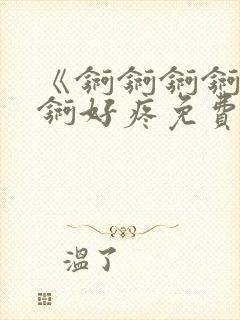 《锕锕锕锕
锕好疼免費
溫了